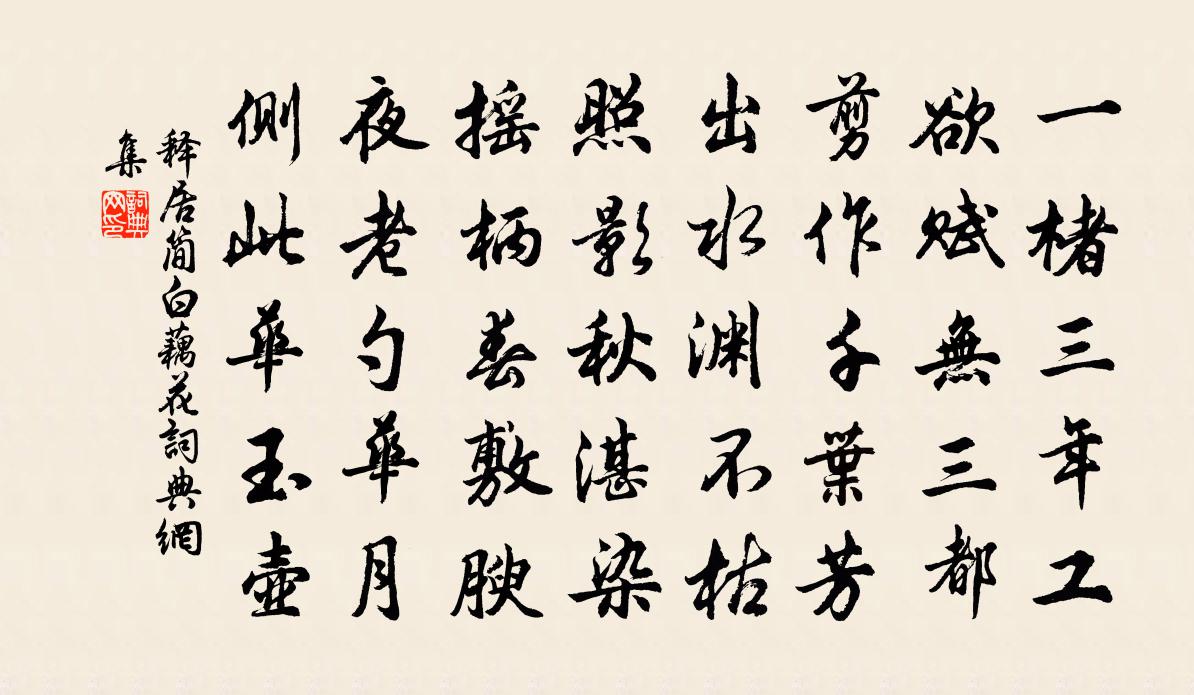 一楮三年工
欲賦無三都
剪作千葉芳
出水渊不枯
照影秋湛染
摇柄春敷腴
夜老勺華月
側此華玉壺
释居简白藕花詞典網
集
詞典
网印